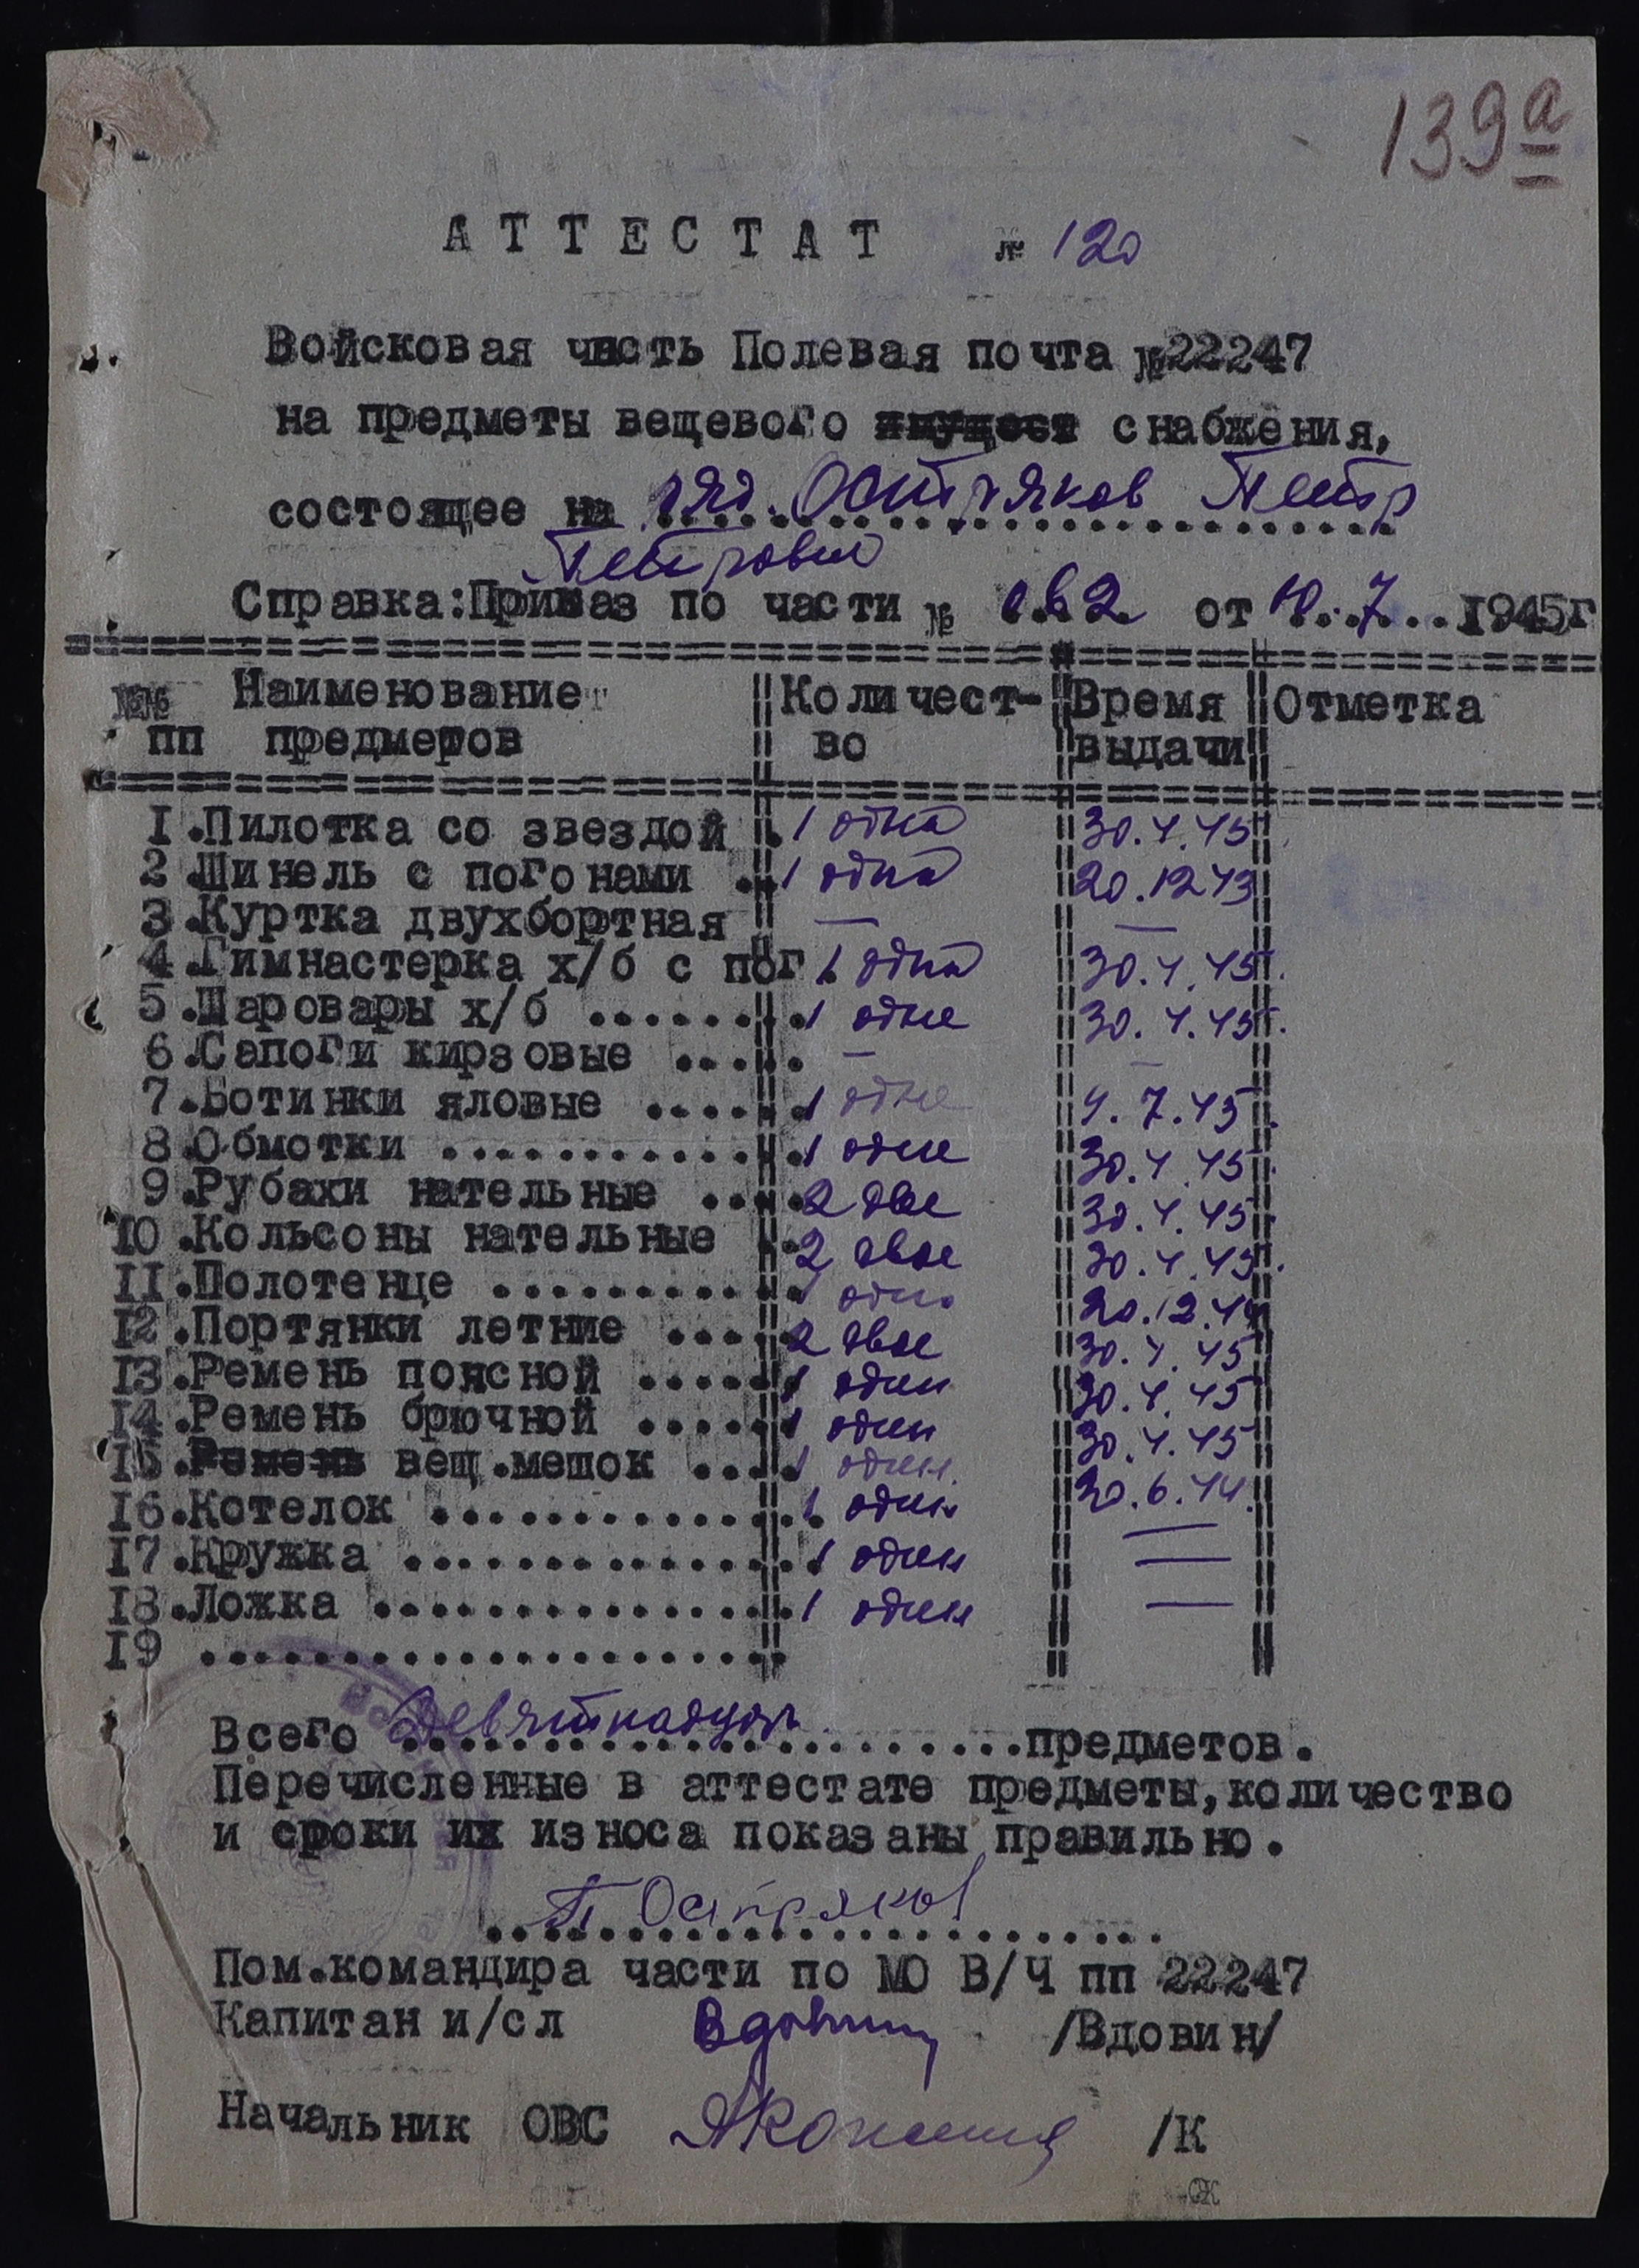 139а
АТТЕСТАТ № 120
Войсковая часть Полевая почта №22247
на предметы вещевого снабжения,
состоящее на ряд. Остряков Петр
Петрович
Справка:Приказ по части № 162 от 10.7...1945г
№№ Наименование Количест- Время Отметка
пп предметов во выдачи
1.Пилотка со звездой . 1 одна 30.4.45
2.Шинель с погонами . 1 одна 20.12 43
3.Куртка двухбортная — —
4.Гимнастерка х/б с пог. 1 одна 30.4.45
5.Шаровары х/б ........ 1 одне 30.4.45
6.Сапоги кирзовые ..... — —
7.Ботинки яловые ...... 1 одне 4.7.45
8.Обмотки ............. 1 одне 30.4.45
9.Рубахи нательные .... 2 две 30.4.45
10.Кольсоны нательные . 2 двое 30.4.45
11.Полотенце ........... 1 одно 20.12.44
12.Портянки летние ..... 2 двое 30.4.45
13.Ремень поясной ...... 1 один 30.4.45
14.Ремень брючной ...... 1 один 30.4.45
15.Ремень вещ.мешок .... 1 один. 20.6.44.
16.Котелок .............. 1 один —
17.Кружка ............... 1 один —
18.Ложка ................ 1 один —
19 .....................
Всего Девятнадцать предметов.
Перечисленные в аттестате предметы,количество
и сроки их износа показаны правильно.
П Остряков
Пом.командира части по МО В/Ч пп 22247
Капитан и/сл Вдовин /Вдовин/
Начальник ОВС /К